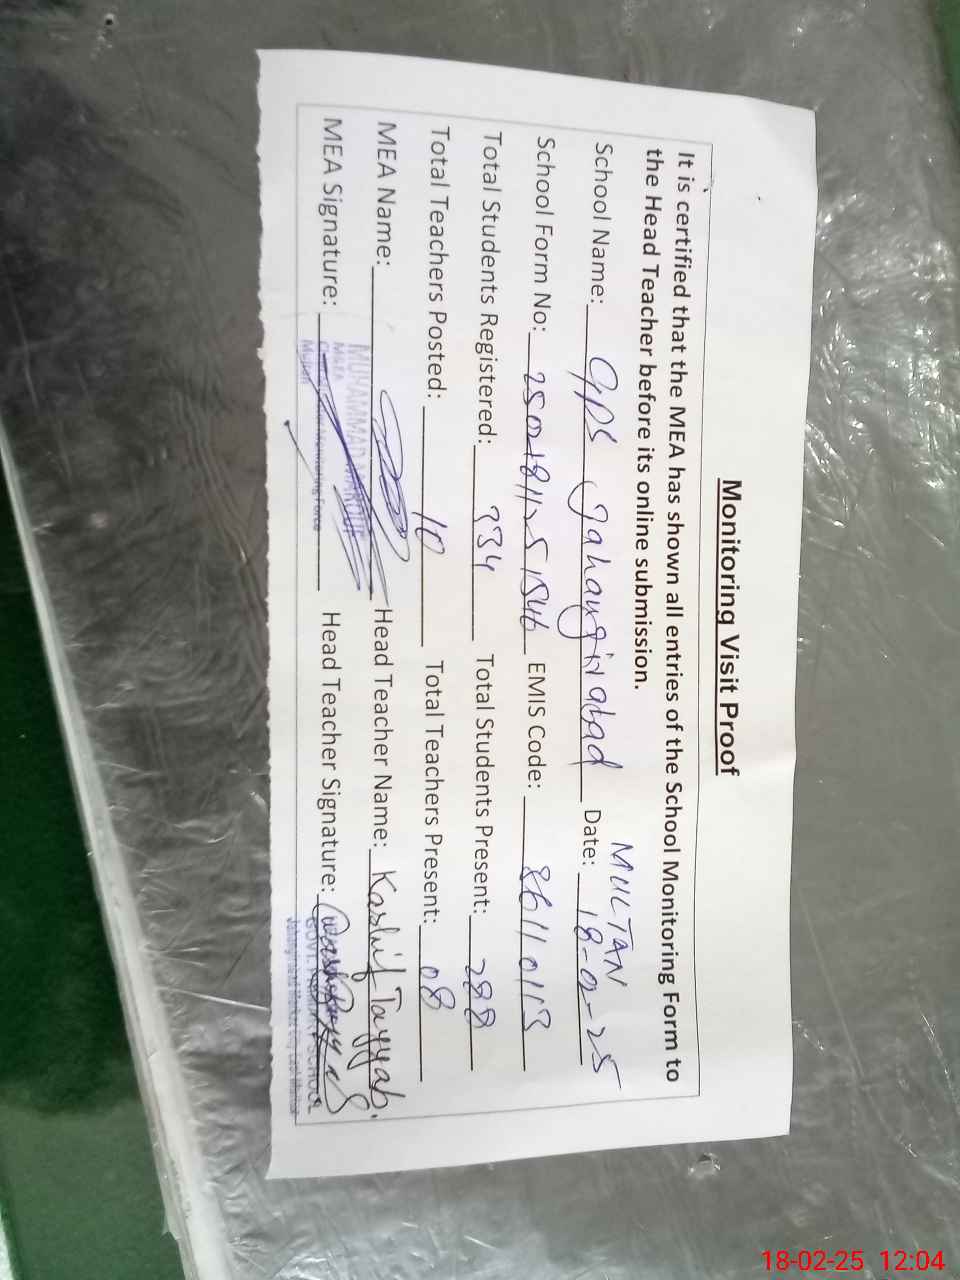 Monitoring Visit Proof
It is certified that the MEA has shown all entries of the School Monitoring Form to
the Head Teacher before its online submission.
MULTAN
School Name: GPS Jahangirabad Date: 18-02-25
School Form No: 25021811251546 EMIS Code: 36110113
Total Students Registered: 334 Total Students Present: 288
Total Teachers Posted: 10 Total Teachers Present: 08
MEA Name: Head Teacher Name: Kashif Tayyab.
MUHAMMAD MAROUF
MEA Signature: Head Teacher Signature:
MEA
Monitoring Force
Multan
GOVT. PRIMARY SCHOOL
18-02-25 12:04